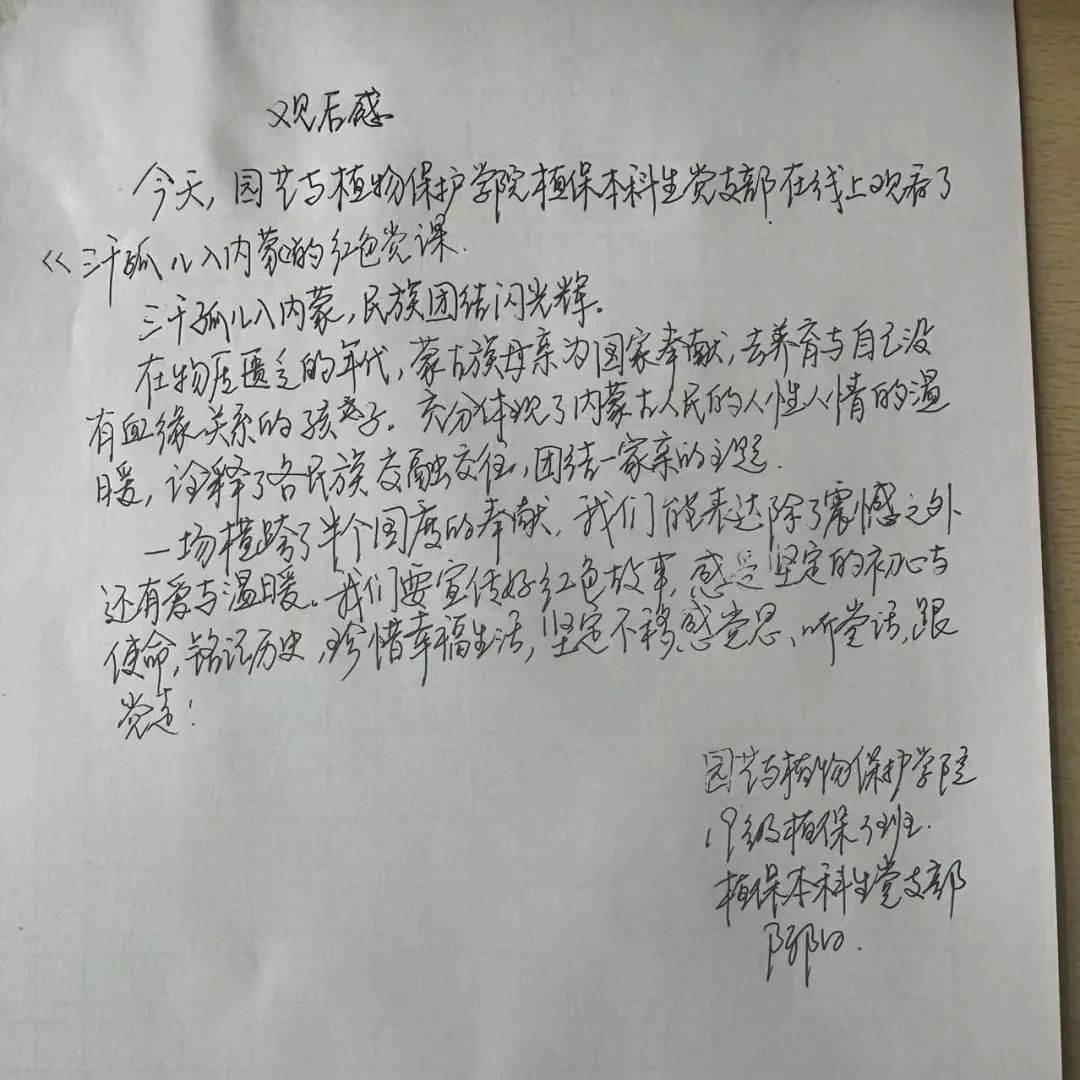 观后感
今天，园艺与植物保护学院植保本科生党支部在线上观看了
《三千孤儿入内蒙》的红色党课.
三千孤儿入内蒙，民族团结闪光辉。
在物质匮乏的年代，蒙古族母亲为国家奉献，去养育与自己没
有血缘关系的孩子。充分体现了内蒙古人民的人性人情的温
暖，诠释了各民族交融交往，团结一家亲的主题.
一场横跨了半个国度的奉献，我们能表达除了震憾之外
还有爱与温暖。我们要宣传好红色故事，感是坚定的初心与
使命，铭记历史，珍惜幸福生活，坚定不移、感党恩、听党话，跟
党走！
园艺与植物保护学院
19级植保班.
植保本科生党支部